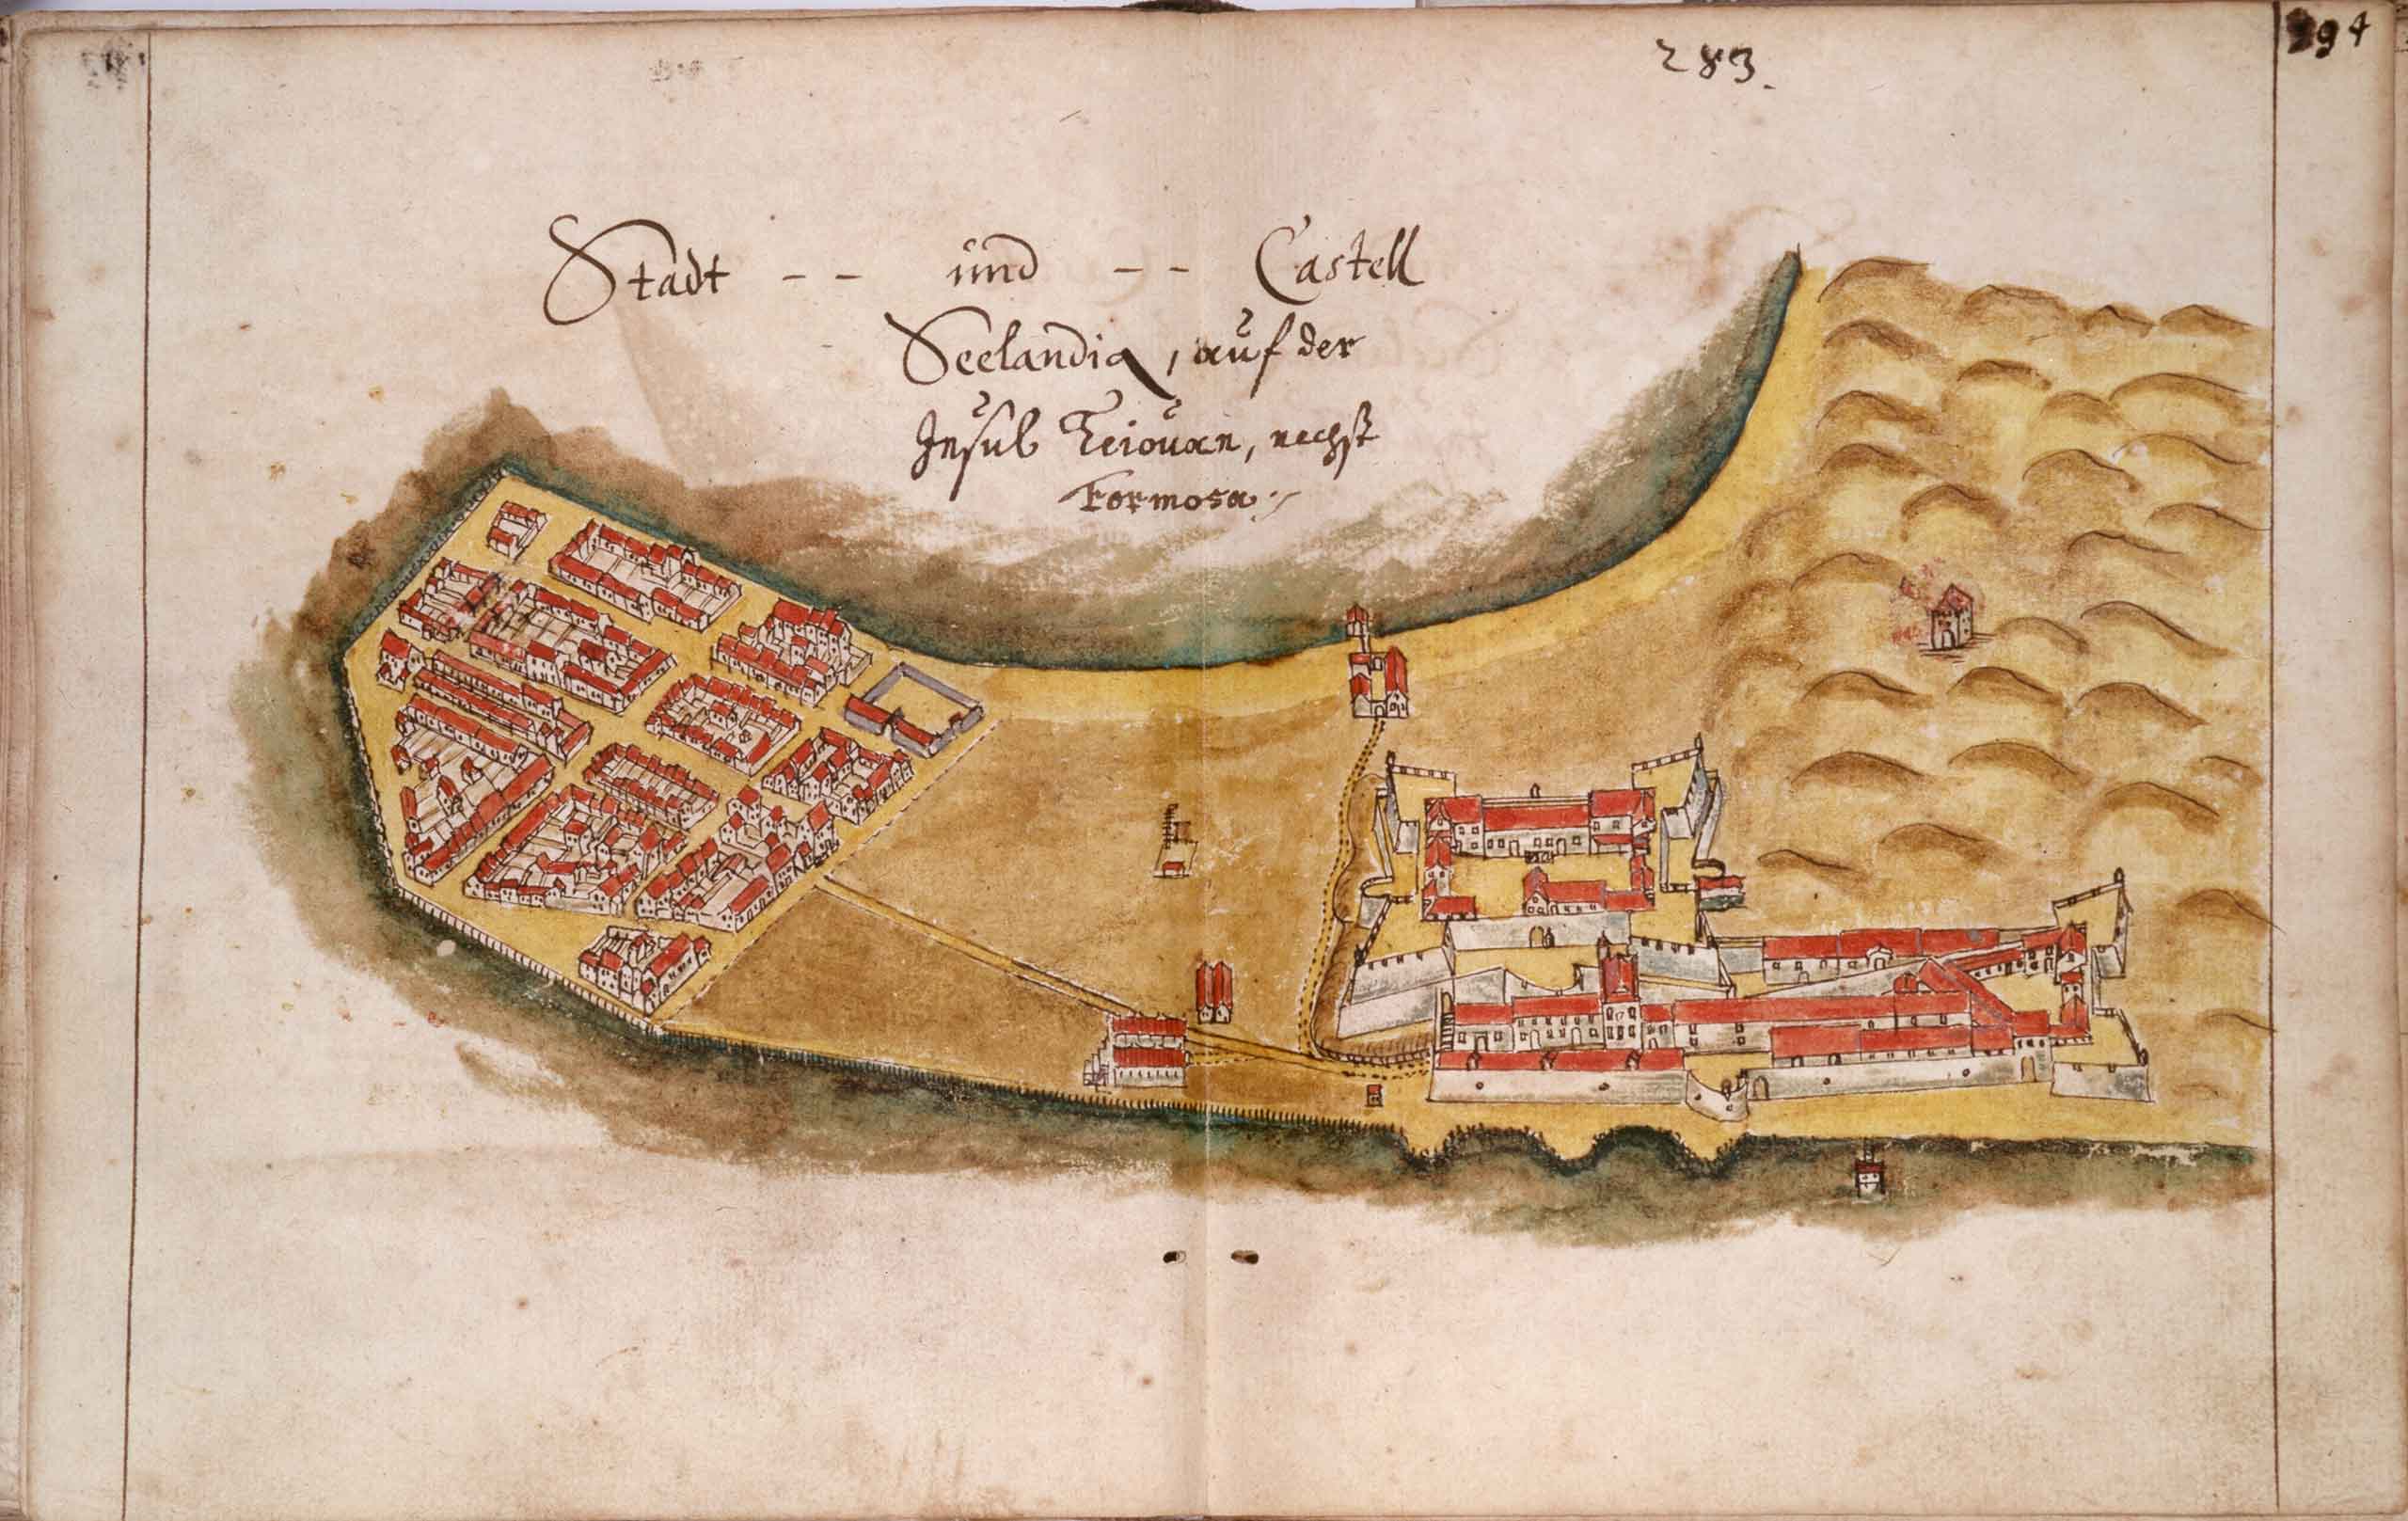 283.
94
Stadt -- und -- Castell
Seelandia, auf der
Insul Teiouan, nechst
Formosa